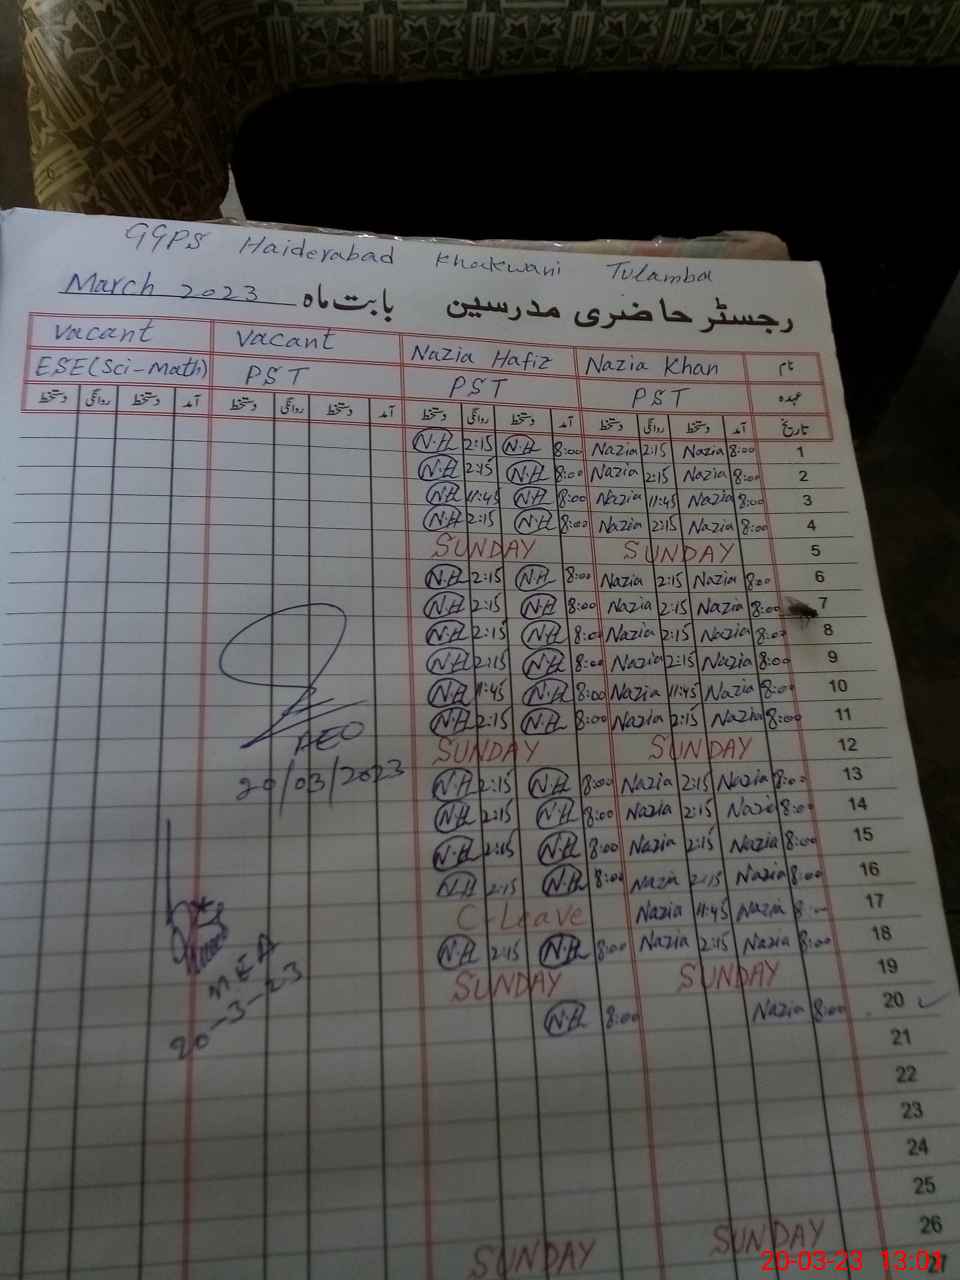 GGPS Haiderabad Khakwani Tulamba
رجسٹر حاضری مدرسین بابت ماہ March 2023
vacant vacant Nazia Hafiz Nazia Khan نام
ESE(Sci-Math) PST PST PST عہدہ
دستخط روانگی دستخط آمد دستخط روانگی دستخط آمد دستخط روانگی دستخط آمد دستخط روانگی دستخط آمد تاریخ
N.H 2:15 N.H 8:00 Nazia 2:15 Nazia 8:00 1
N.H 2:15 N.H 8:00 Nazia 2:15 Nazia 8:00 2
N.H 11:45 N.H 8:00 Nazia 11:45 Nazia 8:00 3
N.H 2:15 N.H 8:00 Nazia 2:15 Nazia 8:00 4
SUNDAY SUNDAY 5
N.H 2:15 N.H 8:00 Nazia 2:15 Nazia 8:00 6
N.H 2:15 N.H 8:00 Nazia 2:15 Nazia 8:00 7
N.H 2:15 N.H 8:00 Nazia 2:15 Nazia 8:00 8
N.H 2:15 N.H 8:00 Nazia 2:15 Nazia 8:00 9
N.H 11:45 N.H 8:00 Nazia 11:45 Nazia 8:00 10
N.H 2:15 N.H 8:00 Nazia 2:15 Nazia 8:00 11
AEO
SUNDAY SUNDAY 12
20/03/2023
N.H 2:15 N.H 8:00 Nazia 2:15 Nazia 8:00 13
N.H 2:15 N.H 8:00 Nazia 2:15 Nazia 8:00 14
N.H 2:15 N.H 8:00 Nazia 2:15 Nazia 8:00 15
N.H 2:15 N.H 8:00 Nazia 2:15 Nazia 8:00 16
C-Leave Nazia 11:45 Nazia 8:00 17
N.H 2:15 N.H 8:00 Nazia 2:15 Nazia 8:00 18
MEA
SUNDAY SUNDAY 19
20-3-23
N.H 8:00 Nazia 8:00 20
21
22
23
24
25
SUNDAY SUNDAY 26
27
20-03-23 13:01